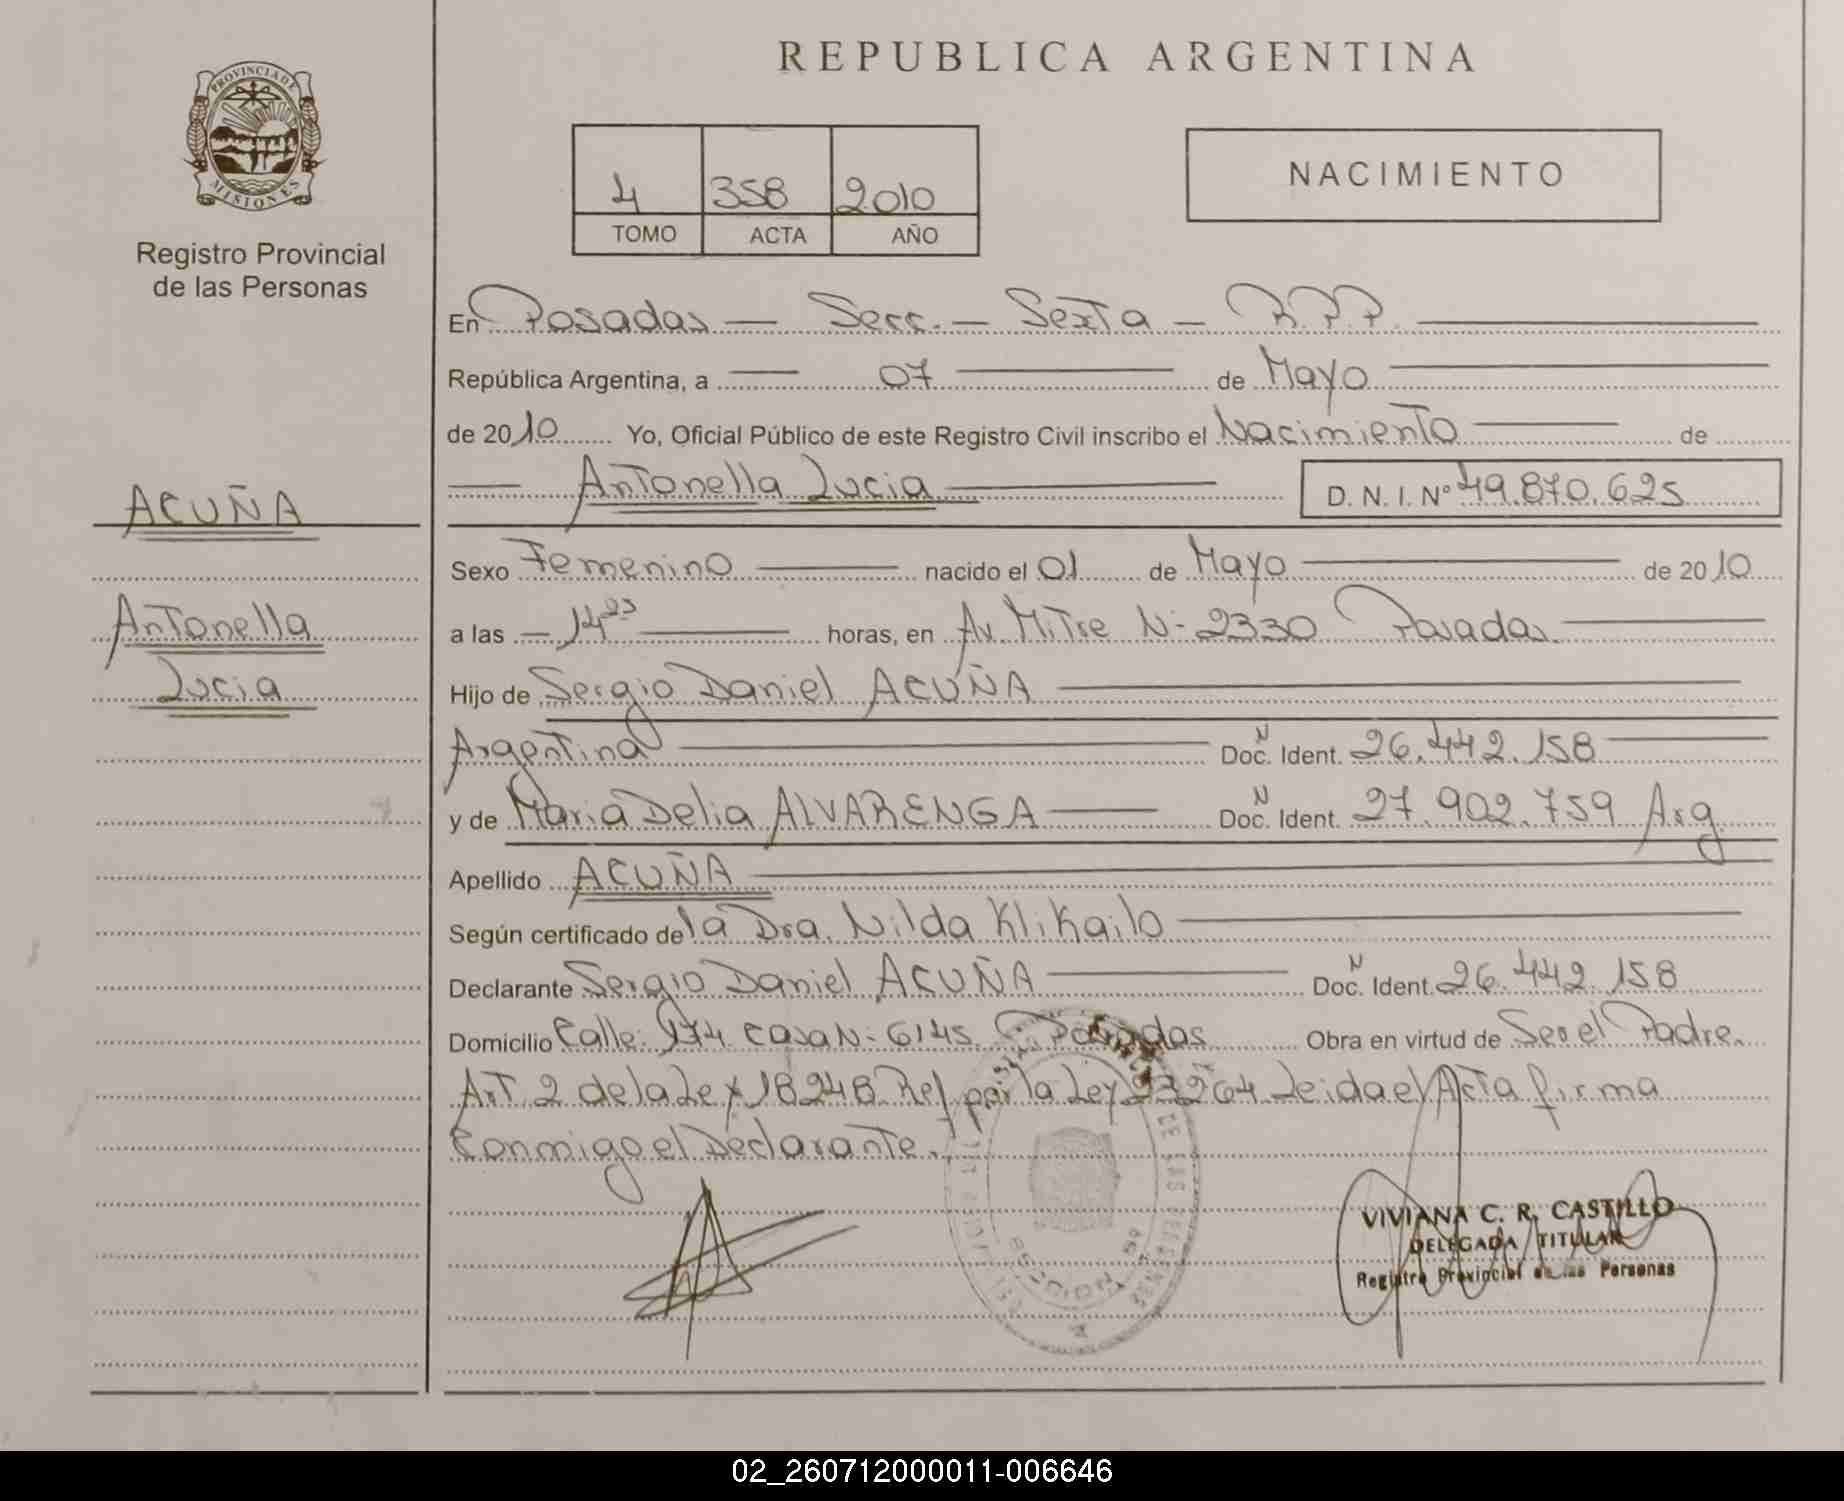 REPUBLICA ARGENTINA
PROVINCIA DE
MISIONES
Registro Provincial
de las Personas
4 358 2010
TOMO ACTA AÑO
NACIMIENTO
En Posadas — Secc. — Sexta — R.P.P.
República Argentina, a — 07 — de Mayo
de 2010 Yo, Oficial Público de este Registro Civil inscribo el Nacimiento — de
— Antonella Lucia — D. N. I. Nº 49.870.625
ACUÑA
Antonella
Lucia
Sexo Femenino — nacido el 01 de Mayo — de 2010
a las — 14 — horas, en Av. Mitre N- 2330 Posadas
Hijo de Sergio Daniel ACUÑA
Argentina — Doc. Ident. N 26.442.158
y de Maria Delia ALVARENGA — Doc. Ident. N 27.902.759 Arg
Apellido ACUÑA
Según certificado de la Dra. Nilda Klikailo
Declarante Sergio Daniel ACUÑA — Doc. Ident. N 26.442.158
Domicilio Calle: 174 Casa N- 6145 Posadas Obra en virtud de Ser el Padre.
Art. 2 de la Ley 18248 Ref por la Ley 23264 Leida el Acta firma
Conmigo el Declarante.
VIVIANA C. R. CASTILLO
DELEGADA TITULAR
Registro Provincial de las Personas
02_260712000011-006646